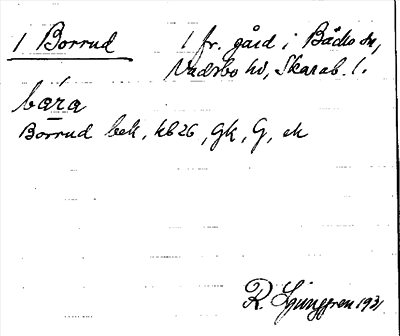 1 Borrud
1 fr. gård i Bäcks sn,
Vadsbo hd, Skarab. l.
bára
Borrud bek, hb26, Gk, G, ek
R. Ljunggren 1931